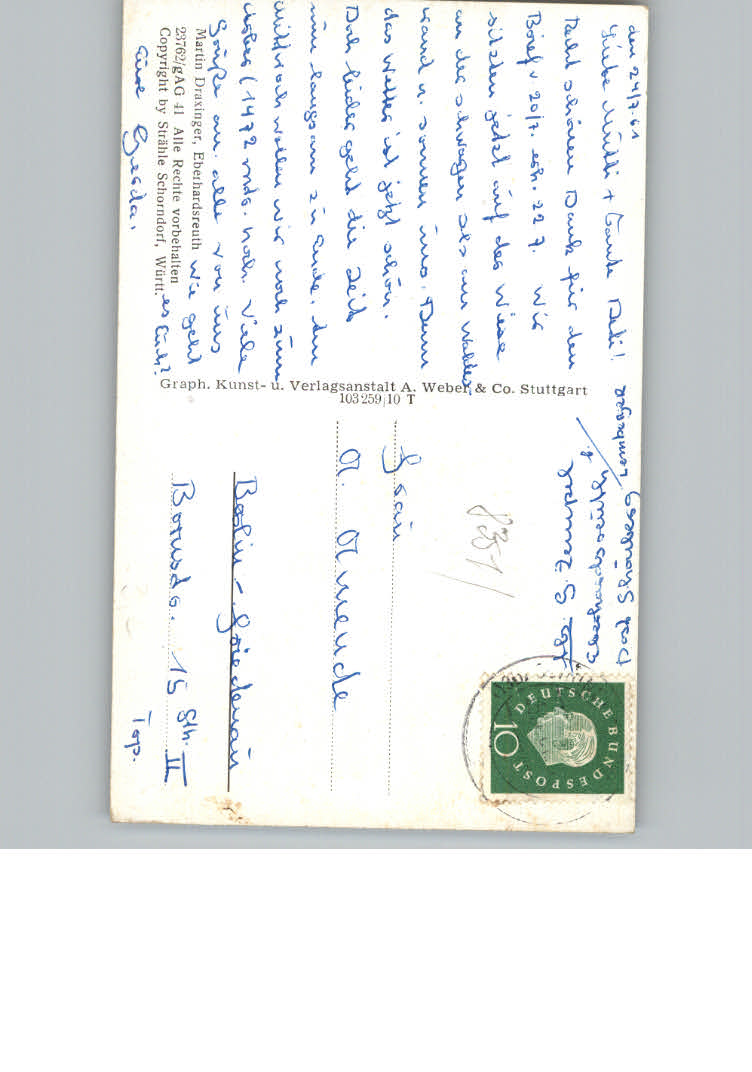 den 24/7.61
Liebe Mutti + Tante Deti!
Recht schönen Dank für den
Brief v 20/7. erh. 22 7. Wir
sitzen jetzt auf der Wiese
an der schwarzen am Waldes
rand u. sonnen uns. Denn
das Wetter ist jetzt schön.
Doch leider geht die Zeit
nun langsam zu Ende.
Mittwoch wollen wir noch zum
(1472 mtr. hoch. Viele
Grüße an alle von uns
Wie geht
es Euch?
Eure Gerda.
Martin Draxinger, Eberhardsreuth
23762/gAG 41 Alle Rechte vorbehalten
Copyright by Strähle Schorndorf, Württ.
Graph. Kunst- u. Verlagsanstalt A. Weber & Co. Stuttgart
103 259/10 T
Abs. G. Zemke
b.
Eberhardsreuth
Post Schönberg
DEUTSCHE BUNDESPOST
10
8351
Frau
A. Amende
Berlin-Friedenau
15 Gth. II
Top.